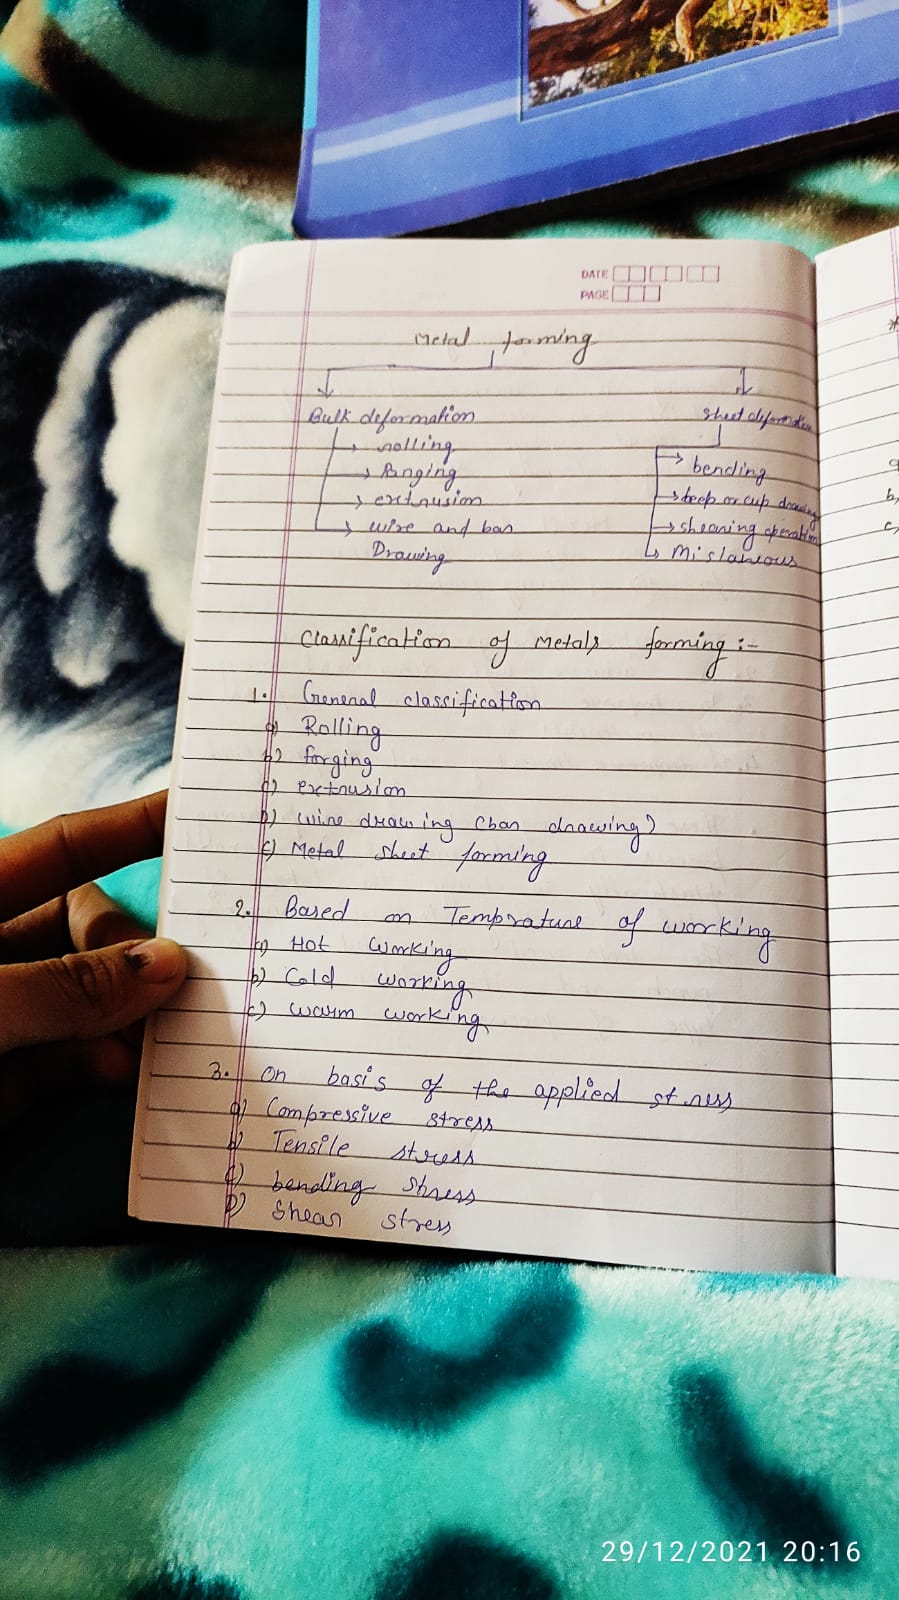 DATE
PAGE
Metal forming
Bulk deformation
rolling
forging
extrusion
wire and bar
Drawing
sheet deformation
bending
deep or cup drawing
shearing operation
Mislaneous
Classification of Metals forming :-
1. General classification
a) Rolling
b) forging
c) extrusion
D) wire drawing (bar drawing)
E) Metal sheet forming
2. Based on Temprature of working
a) Hot working
b) Cold working
c) warm working
3. On basis of the applied stress
a) Compressive stress
b) Tensile stress
c) bending stress
D) Shear stress
b,
c,
29/12/2021 20:16